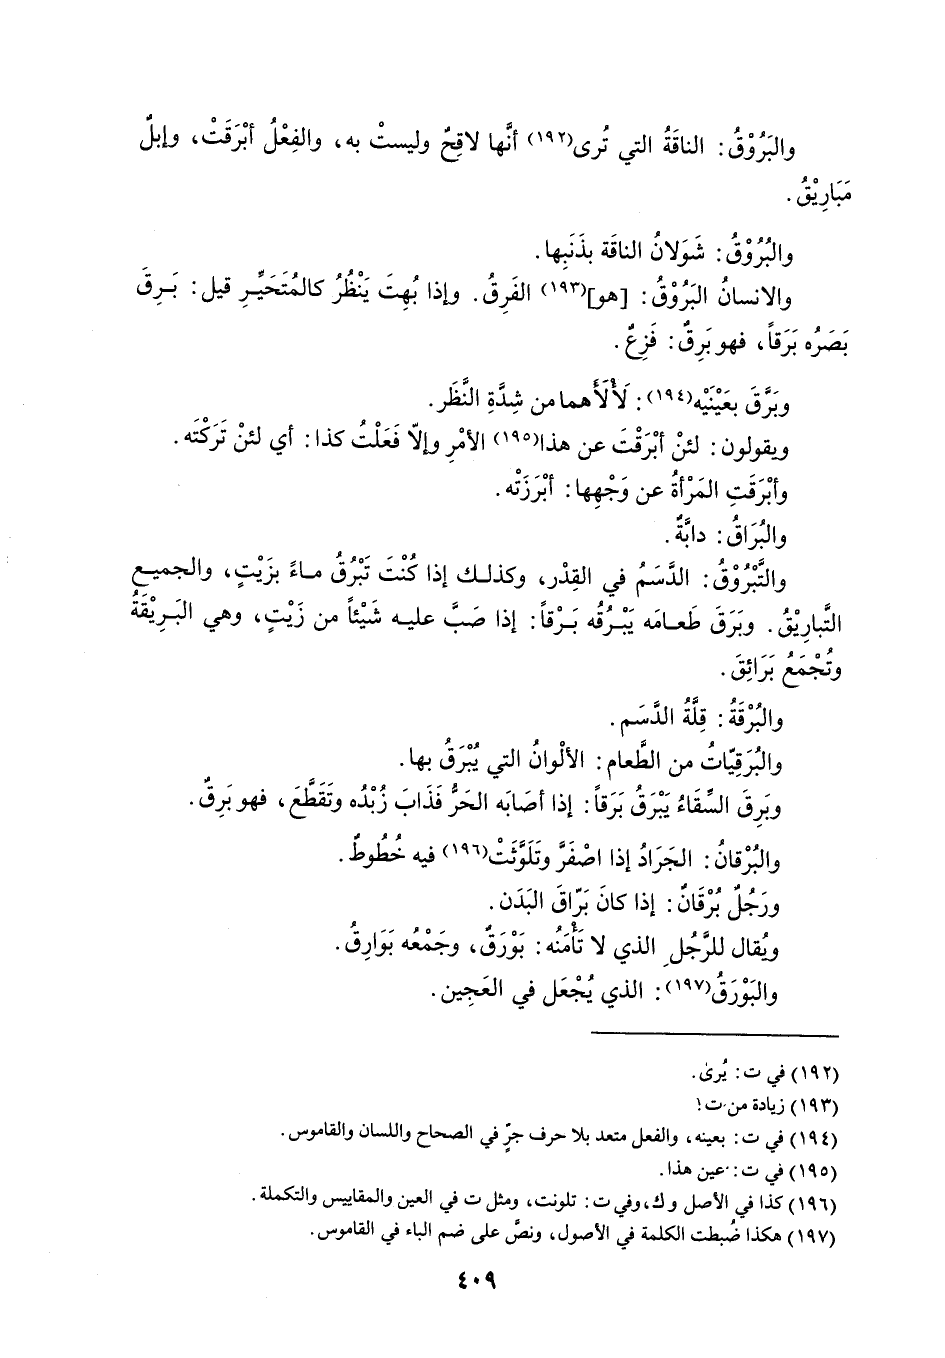 والبَرُوْقُ: الناقَةُ التي تُرى(١٩٢) أنَّها لاقِحٌ وليستْ به، والفِعْلُ أبْرَقَتْ، وإبلٌ
مَبَارِيْقُ.
والبُرُوْقُ: شَوَلانُ الناقَة بذَنَبِها.
والانسانُ البَرُوْقُ: [هو](١٩٣) الفَرِقُ. وإذا بُهِتَ يَنْظُرُ كالمُتَحَيِّرِ قيل: بَرِقَ
بَصَرُه بَرَقاً، فهو بَرِقٌ: فَزِعٌ.
وبَرَّقَ بعَيْنَيْه(١٩٤): لَأْلَأَهما من شِدَّةِ النَّظَر.
ويقولون: لئنْ أبْرَقْتَ عن هذا(١٩٥) الأمْرِ وإلاّ فَعَلْتُ كذا: أي لئنْ تَرَكْتَه.
وأبْرَقَتِ المَرْأةُ عن وَجْهِها: أبْرَزَتْه.
والبُرَاقُ: دابَّةٌ.
والتَّبْرُوْقُ: الدَّسَمُ في القِدْر، وكذلك إذا كُنْتَ تَبْرُقُ ماءً بزَيْتٍ، والجميع
التَّبارِيْقُ. وبَرَقَ طَعامَه يَبْرُقُه بَرْقاً: إذا صَبَّ عليه شَيْئاً من زَيْتٍ، وهي البَرِيْقَةُ
وتُجْمَعُ بَرَائِقَ.
والبُرْقَةُ: قِلَّةُ الدَّسَم.
والبُرَقِيّاتُ من الطَّعام: الألْوانُ التي يُبْرَقُ بها.
وبَرِقَ السِّقَاءُ يَبْرَقُ بَرَقاً: إذا أصَابَه الحَرُّ فَذَابَ زُبْدُه وتَقَطَّعَ، فهو بَرِقٌ.
والبُرْقانُ: الجَرَادُ إذا اصْفَرَّ وتَلَوَّثَتْ(١٩٦) فيه خُطُوطٌ.
ورَجُلٌ بُرْقَانٌ: إذا كانَ بَرّاقَ البَدَن.
ويُقال للرَّجُلِ الذي لا تَأْمَنُه: بَوْرَقٌ، وجَمْعُه بَوَارِقُ.
والبَوْرَقُ(١٩٧): الذي يُجْعَل في العَجِين.
(١٩٢) في ت: يُرىٰ.
(١٩٣) زيادة من ت!
(١٩٤) في ت: بعينه، والفعل متعد بلا حرف جرٍّ في الصحاح واللسان والقاموس.
(١٩٥) في ت: عين هذا.
(١٩٦) كذا في الأصل وك، وفي ت: تلونت، ومثل ت في العين والمقاييس والتكملة.
(١٩٧) هكذا ضُبطت الكلمة في الأصول، ونصَّ على ضم الباء في القاموس.
٤٠٩